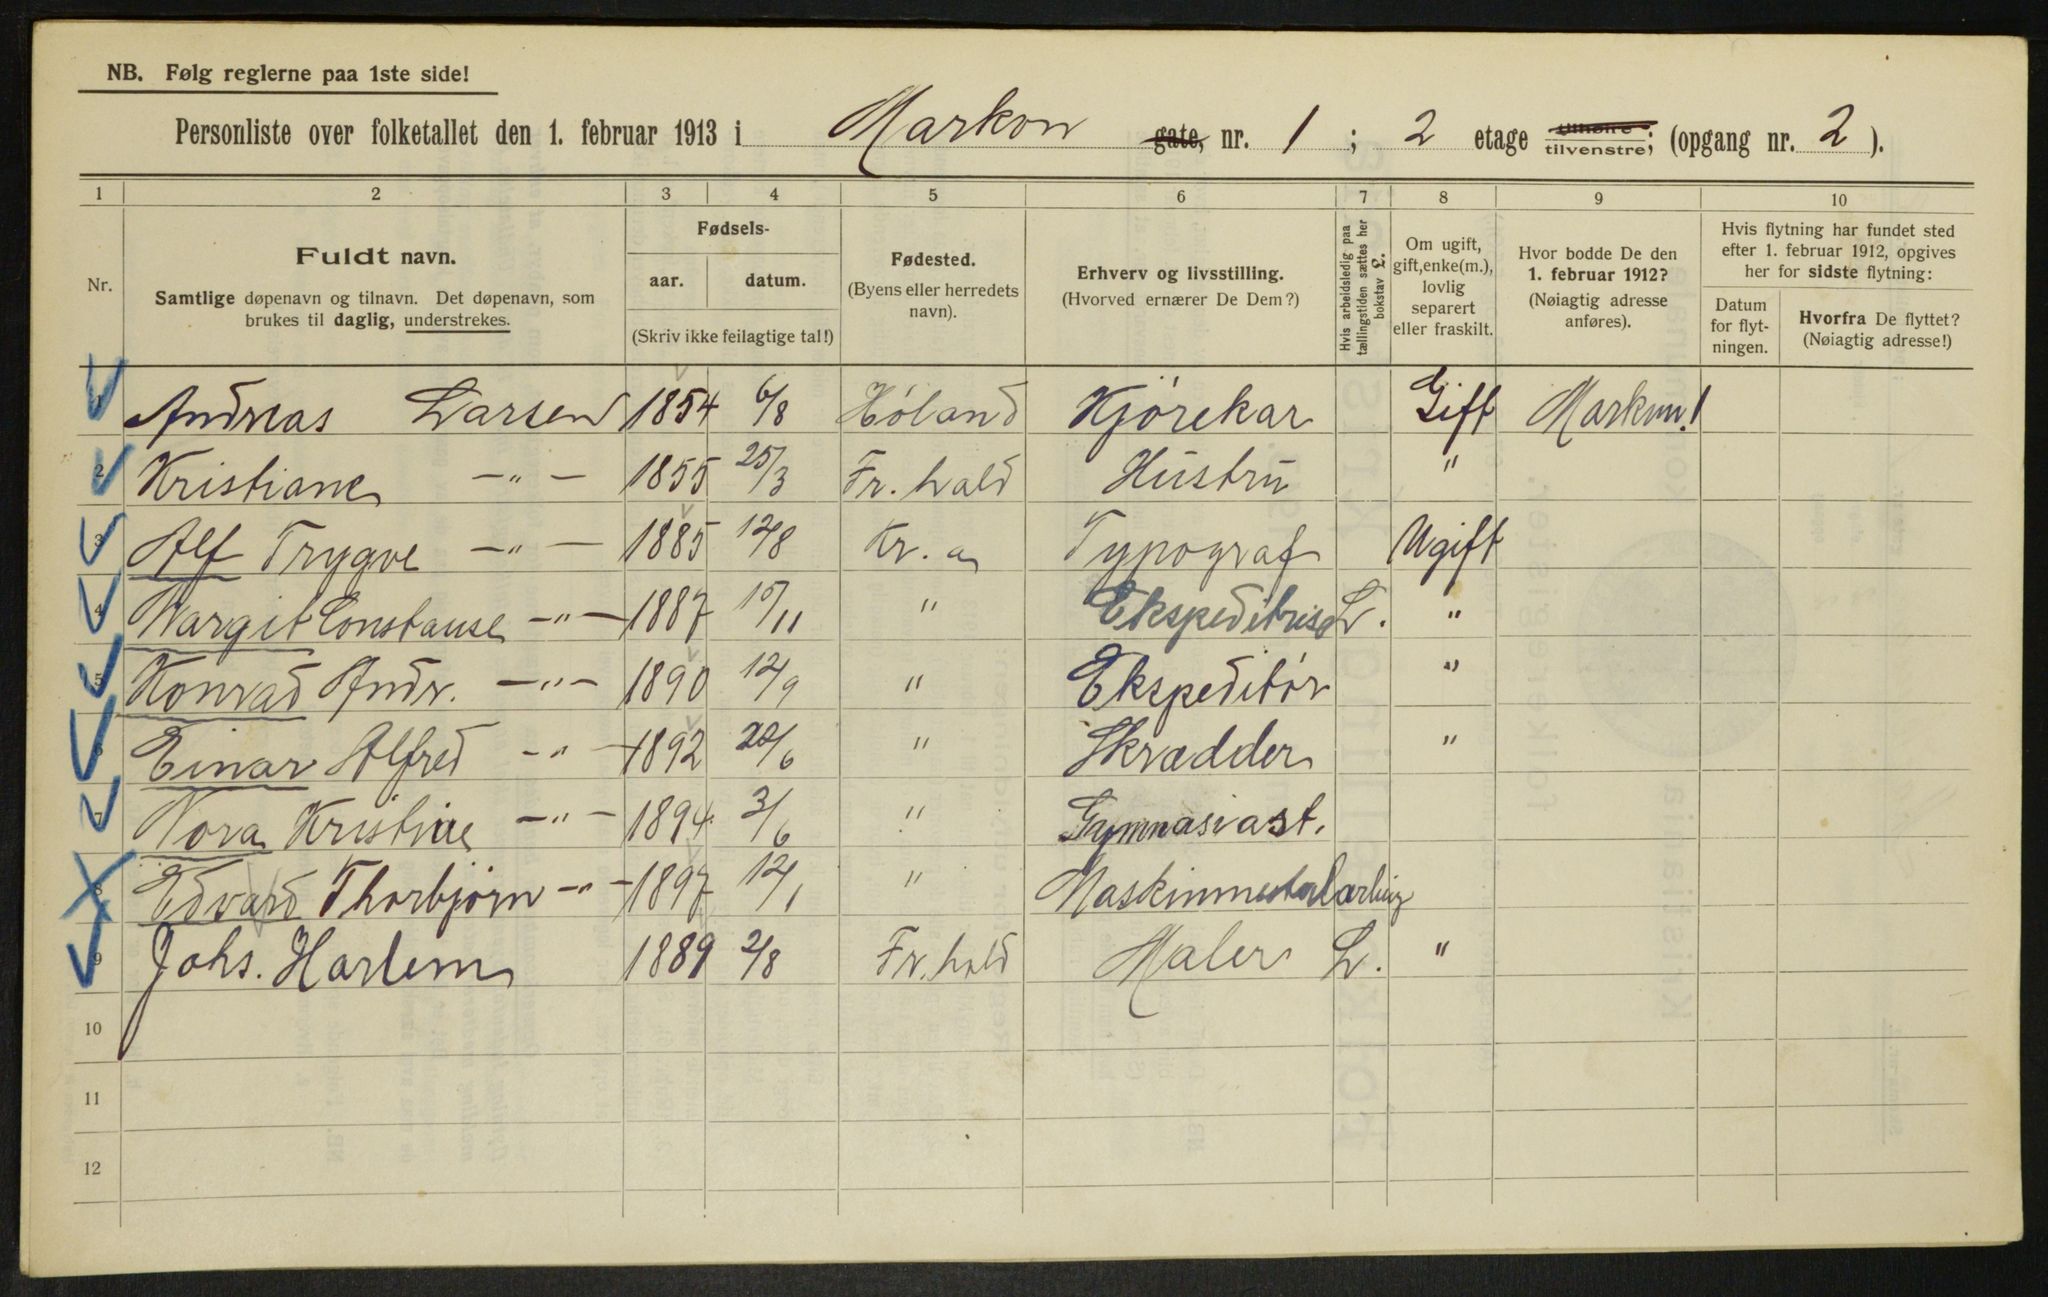 NB. Følg reglerne paa 1ste side!
Personliste over folketallet den 1. februar 1913 i Markvn gate, nr. 1 ; 2 etage tilhøire tilvenstre; (opgang nr. 2 ).
1 2 3 4 5 6 7 8 9 10
Nr.
Fuldt navn.
Samtlige døpenavn og tilnavn. Det døpenavn, som
brukes til daglig, understrekes.
Fødsels-
aar. datum.
(Skriv ikke feilagtige tal!)
Fødested.
(Byens eller herredets
navn).
Erhverv og livsstilling.
(Hvorved ernærer De Dem?)
Hvis arbeidsledig paa
tællingstiden sættes her
bokstav L.
Om ugift,
gift, enke(m.),
lovlig
separert
eller fraskilt.
Hvor bodde De den
1. februar 1912?
(Nøiagtig adresse
anføres).
Hvis flytning har fundet sted
efter 1. februar 1912, opgives
her for sidste flytning:
Datum
for flyt-
ningen.
Hvorfra De flyttet?
(Nøiagtig adresse!)
1 Andreas Larsen 1854 6/8 Høland Kjørekar Gift Markvn. 1
2 Kristiane -„- 1855 25/3 Fr. hald Hustru "
3 Alf Trygve -„- 1885 12/8 Kr. a Typograf Ugift
4 Margit Constanse -„- 1887 15/11 " Ekspeditrise L. "
5 Konrad Andr. -„- 1890 12/9 " Ekspeditør "
6 Einar Alfred -„- 1892 20/6 " Skrædder "
7 Nora Kristine -„- 1894 3/6 " Gymnasiast.
8 Edvard Thorbjørn -„- 1897 12/1 " Maskinmesterlærling
9 Johs. Harlem 1889 2/8 Fr. hald Maler L. "
10
11
12